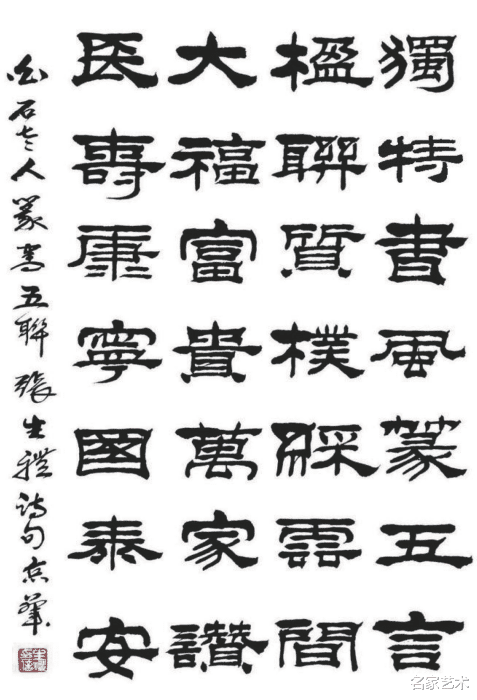 獨特書風篆五言
楹聯質樸綵雲間
大福富貴萬家讚
長壽康寧國泰安
白石老人篆書五聯張生禮詩句
名家艺术